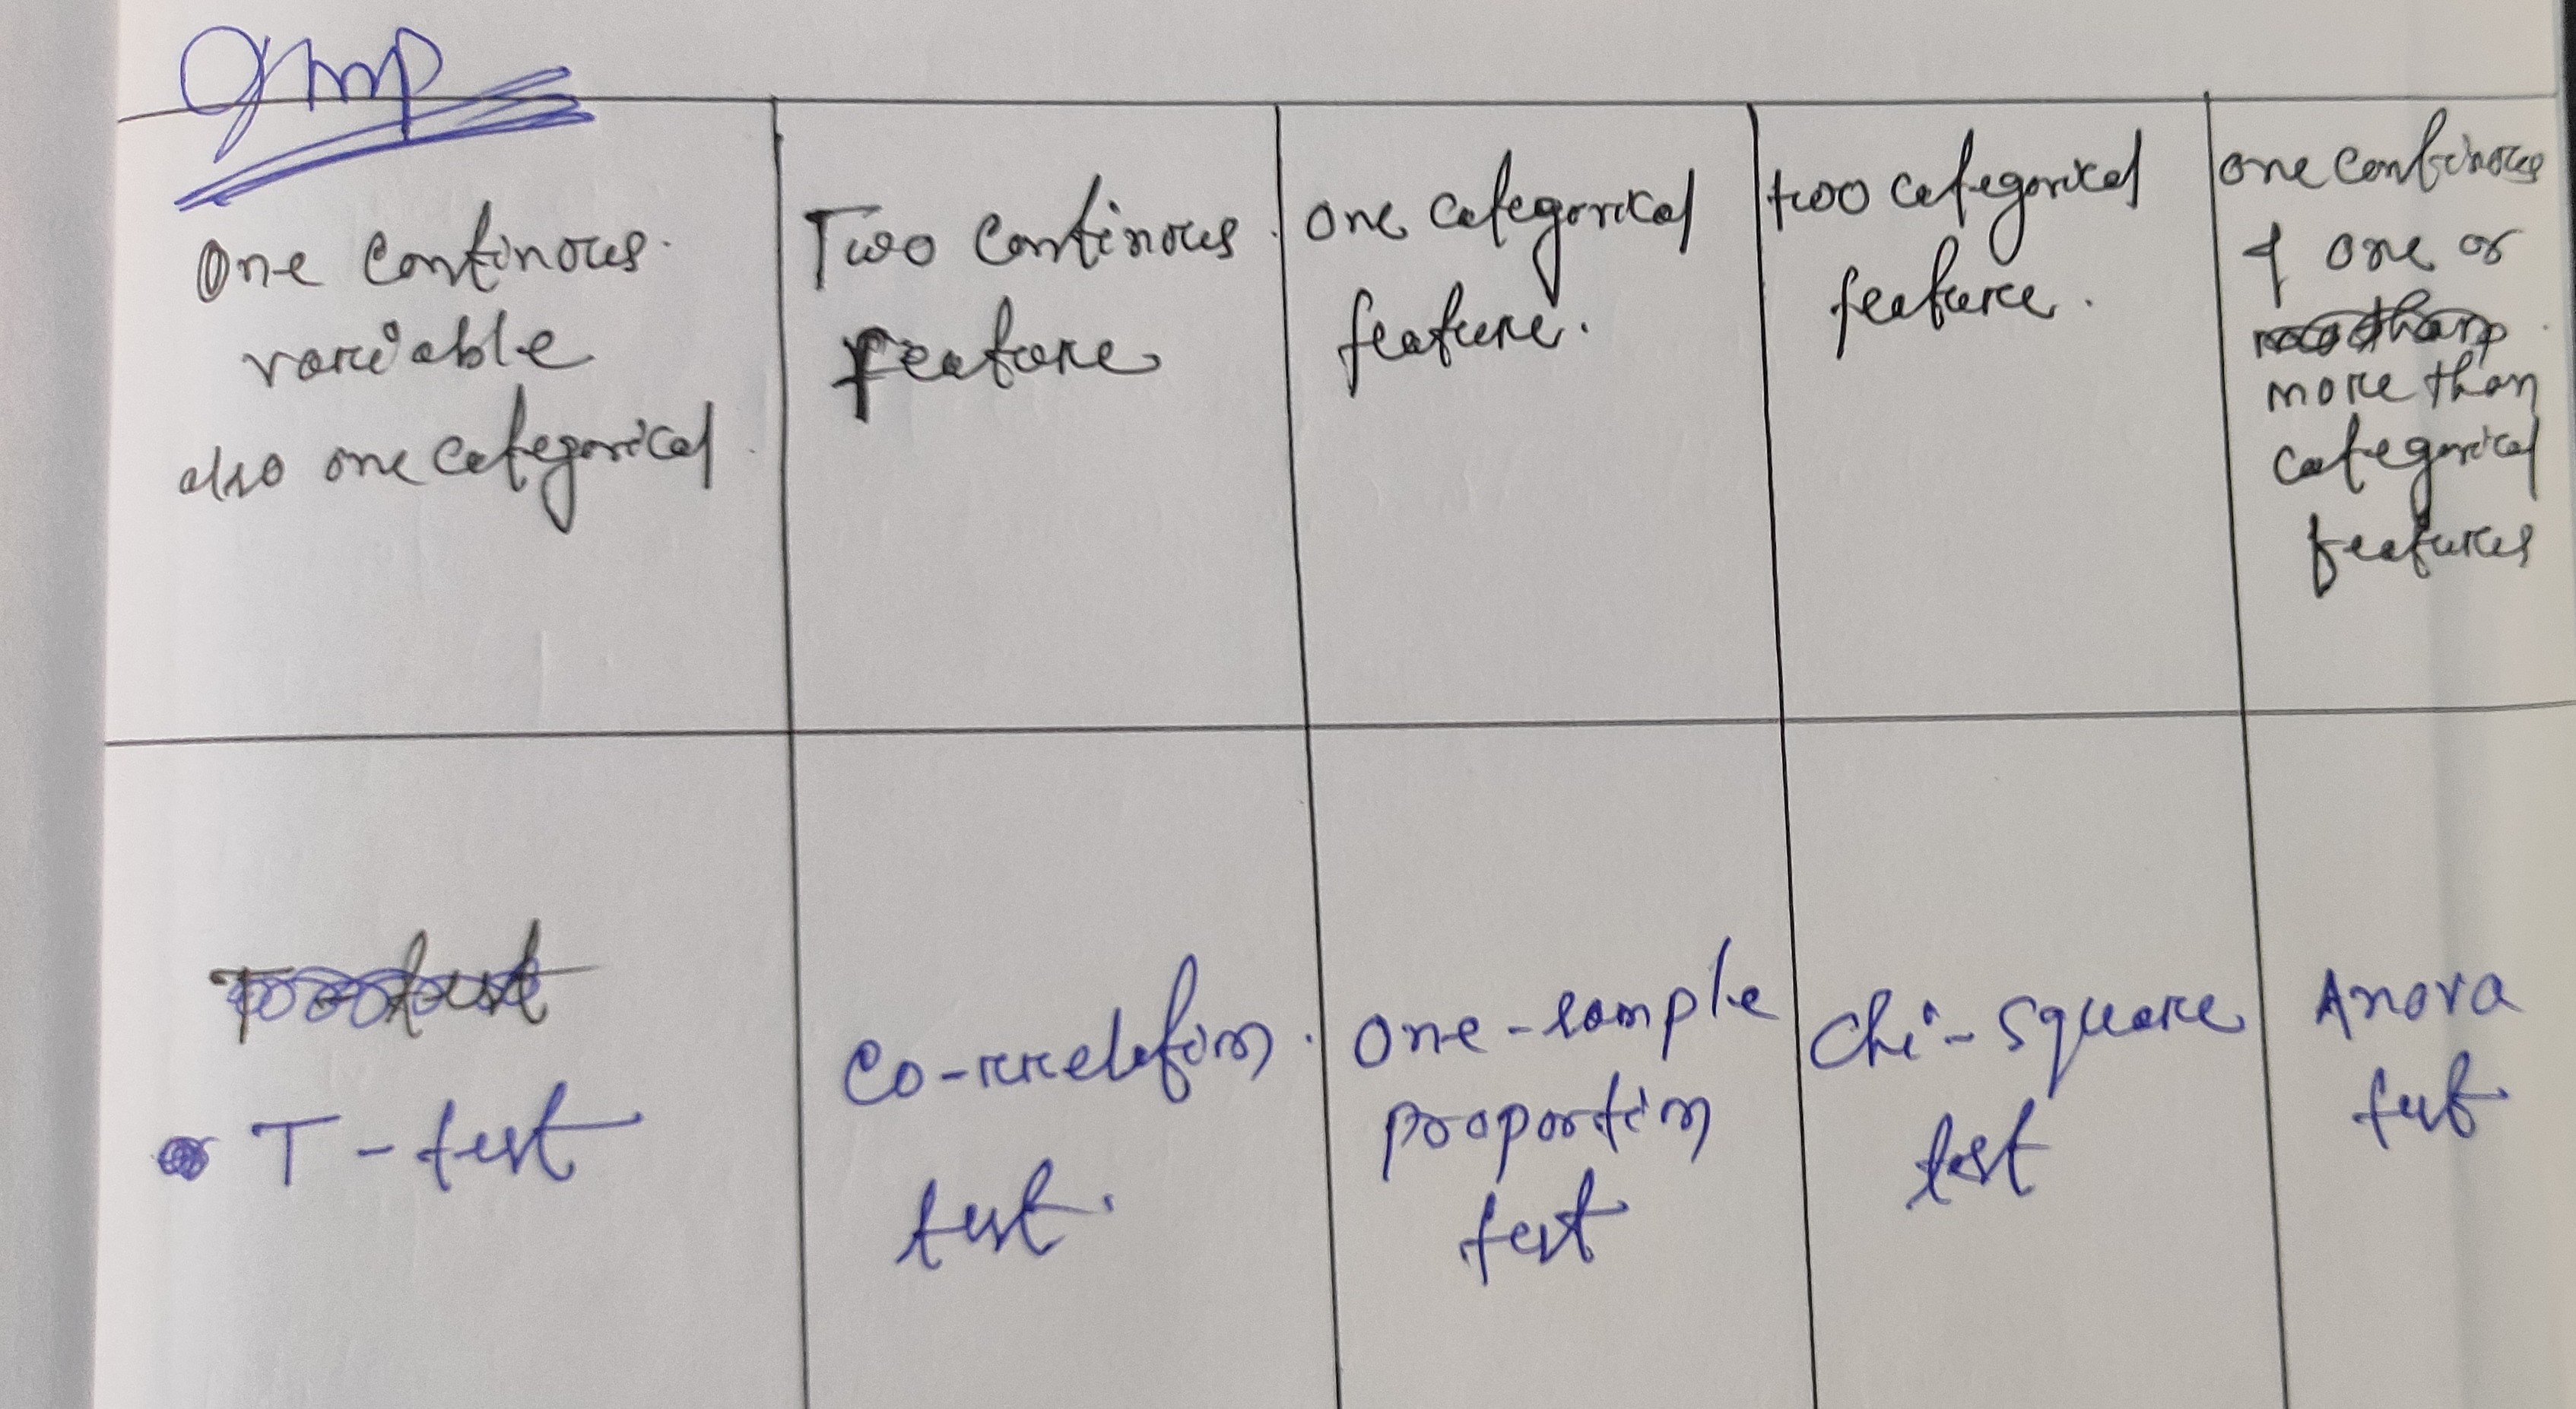 Imp
One continous
variable
also one categorical
Two continous
feature
one categorical
feature.
two categorical
feature.
one continous
& one or
more than
categorical
features
T-test
Co-rrelation
test.
One-sample
proportion
test
Chi-square
test
Anova
test